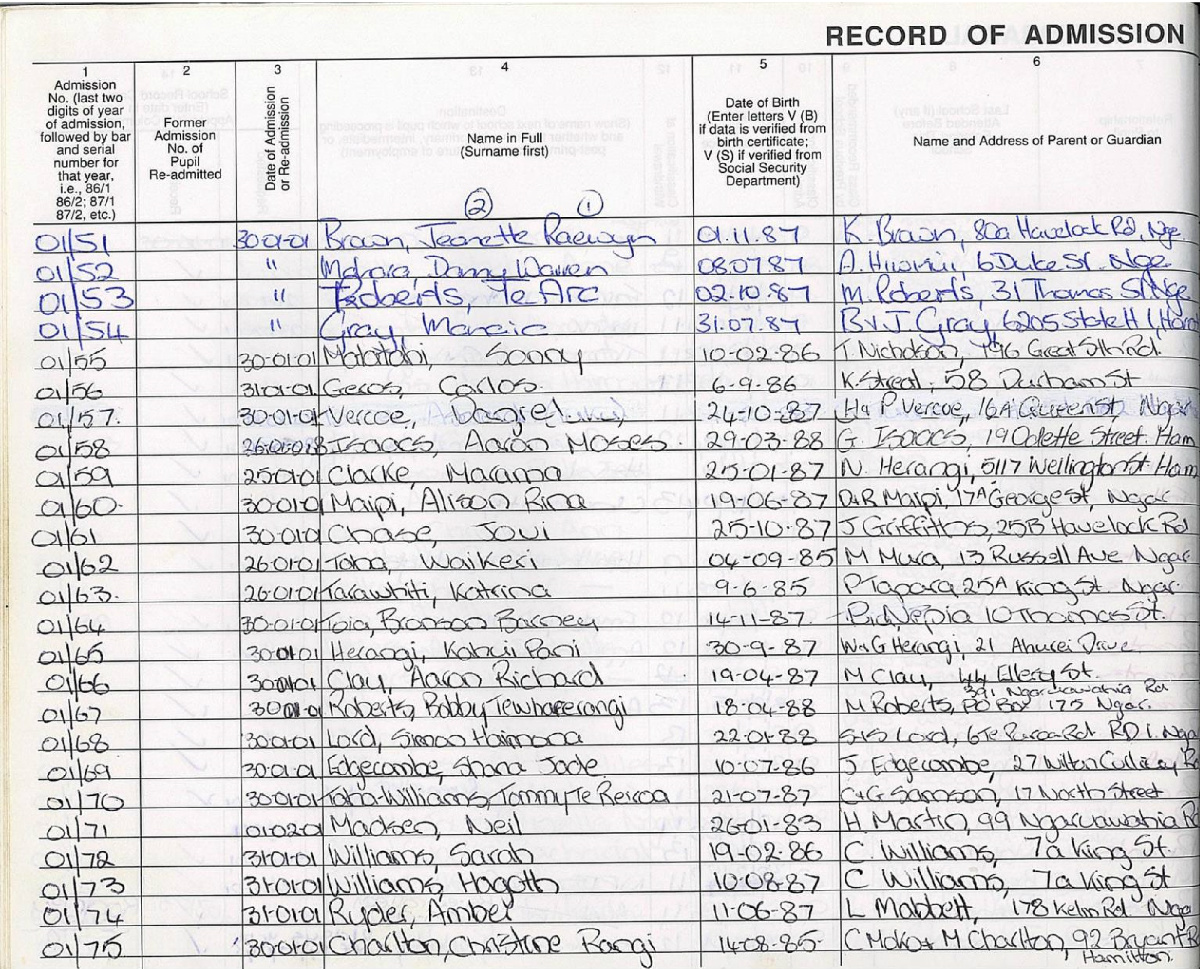 RECORD OF ADMISSION
1 2 3 4 5 6
Admission No. (last two digits of year of admission, followed by bar and serial number for that year, i.e., 86/1 86/2; 87/1 87/2, etc.)
Former Admission No. of Pupil Re-admitted
Date of Admission or Re-admission
Name in Full (Surname first)
Date of Birth (Enter letters V (B) if data is verified from birth certificate; V (S) if verified from Social Security Department)
Name and Address of Parent or Guardian
2 1
01/51 30-01-01 Brown, Jeanette Raewyn 01.11.87 K. Brown, 80a Havelock Rd, Nga
01/52 " Danny Warren 08.07.87 A. 6 Duke St. Nga
01/53 " Roberts, Te Arc 02.10.87 M. Roberts, 31 Thomas St Nga
01/54 " Gray, 31.07.87 B & J Gray, 6205 State H
01/55 30-01-01 Sonny 10-02-86 T. Nicholson, 196 Great Sth Rd.
01/56 31-01-01 Geros, Carlos 6-9-86 K. Street. 58 Durham St
01/57. 30-01-01 Vercoe, 24-10-87 H & P Vercoe, 16A Queen St, Ngar
01/58 Isaacs, Aaron Moses 29-03-88 G. Isaacs, 19 Odette Street. Ham
01/59 25-01-01 Clarke, Marama 25-01-87 N. Herangi, 5117 Wellington St Ham
01/60. 30-01-01 Maipi, Alison Rina 19-06-87 D&R Maipi, 17A George St, Ngar
01/61 30-01-01 Chase, Jovi 25-10-87 J Griffiths, 25B Havelock Rd
01/62 26-01-01 Taha, Waikeri 04-09-85 M Mura, 13 Russell Ave Ngar
01/63. 26-01-01 Tarawhiti, Katrina 9-6-85 P Tapara 25A King St. Ngar.
01/64 30-01-01 Toia, Bronson Barney 14-11-87. Nepia 10 Thomas St.
01/65 30-01-01 Herangi, Kahui Pani 30-9-87 W & G Herangi, 21 Ahurei Drive
01/66 30-01-01 Clay, Aaron Richard 19-04-87 M Clay, 44 Ellery St.
01/67 30-01-01 Roberts, Bobby Tewharerangi 18-04-88 M Roberts, 391 Ngaruawahia Rd PO Box 175 Ngar.
01/68 30-01-01 Lord, Simon Haimona 22-01-88 Lord, RD 1. Nga
01/69 30-01-01 Edgecombe, Shana Jade. 10-07-86 J. Edgecombe, 27 Wilton
01/70 30-01-01 Taha-Williams, Tommy Te Reiroa 21-07-87 C & G Samson, 17 North Street
01/71 01-02-01 Madsen, Neil 26-01-83 H Martin, 99 Ngaruawahia R
01/72 31-01-01 Williams, Sarah 19-02-86 C. Williams, 7a King St.
01/73 31-01-01 Williams, Hagoth 10-08-87 C Williams, 7a King St
01/74 31-01-01 Ryder, Amber 11-06-87 L Mabbett, 178 Kelm Rd. Nga
01/75 30-01-01 Charlton, Christine Rangi 14-08-85. C Moko & M Charlton, 92 Bryant R
Hamilton.